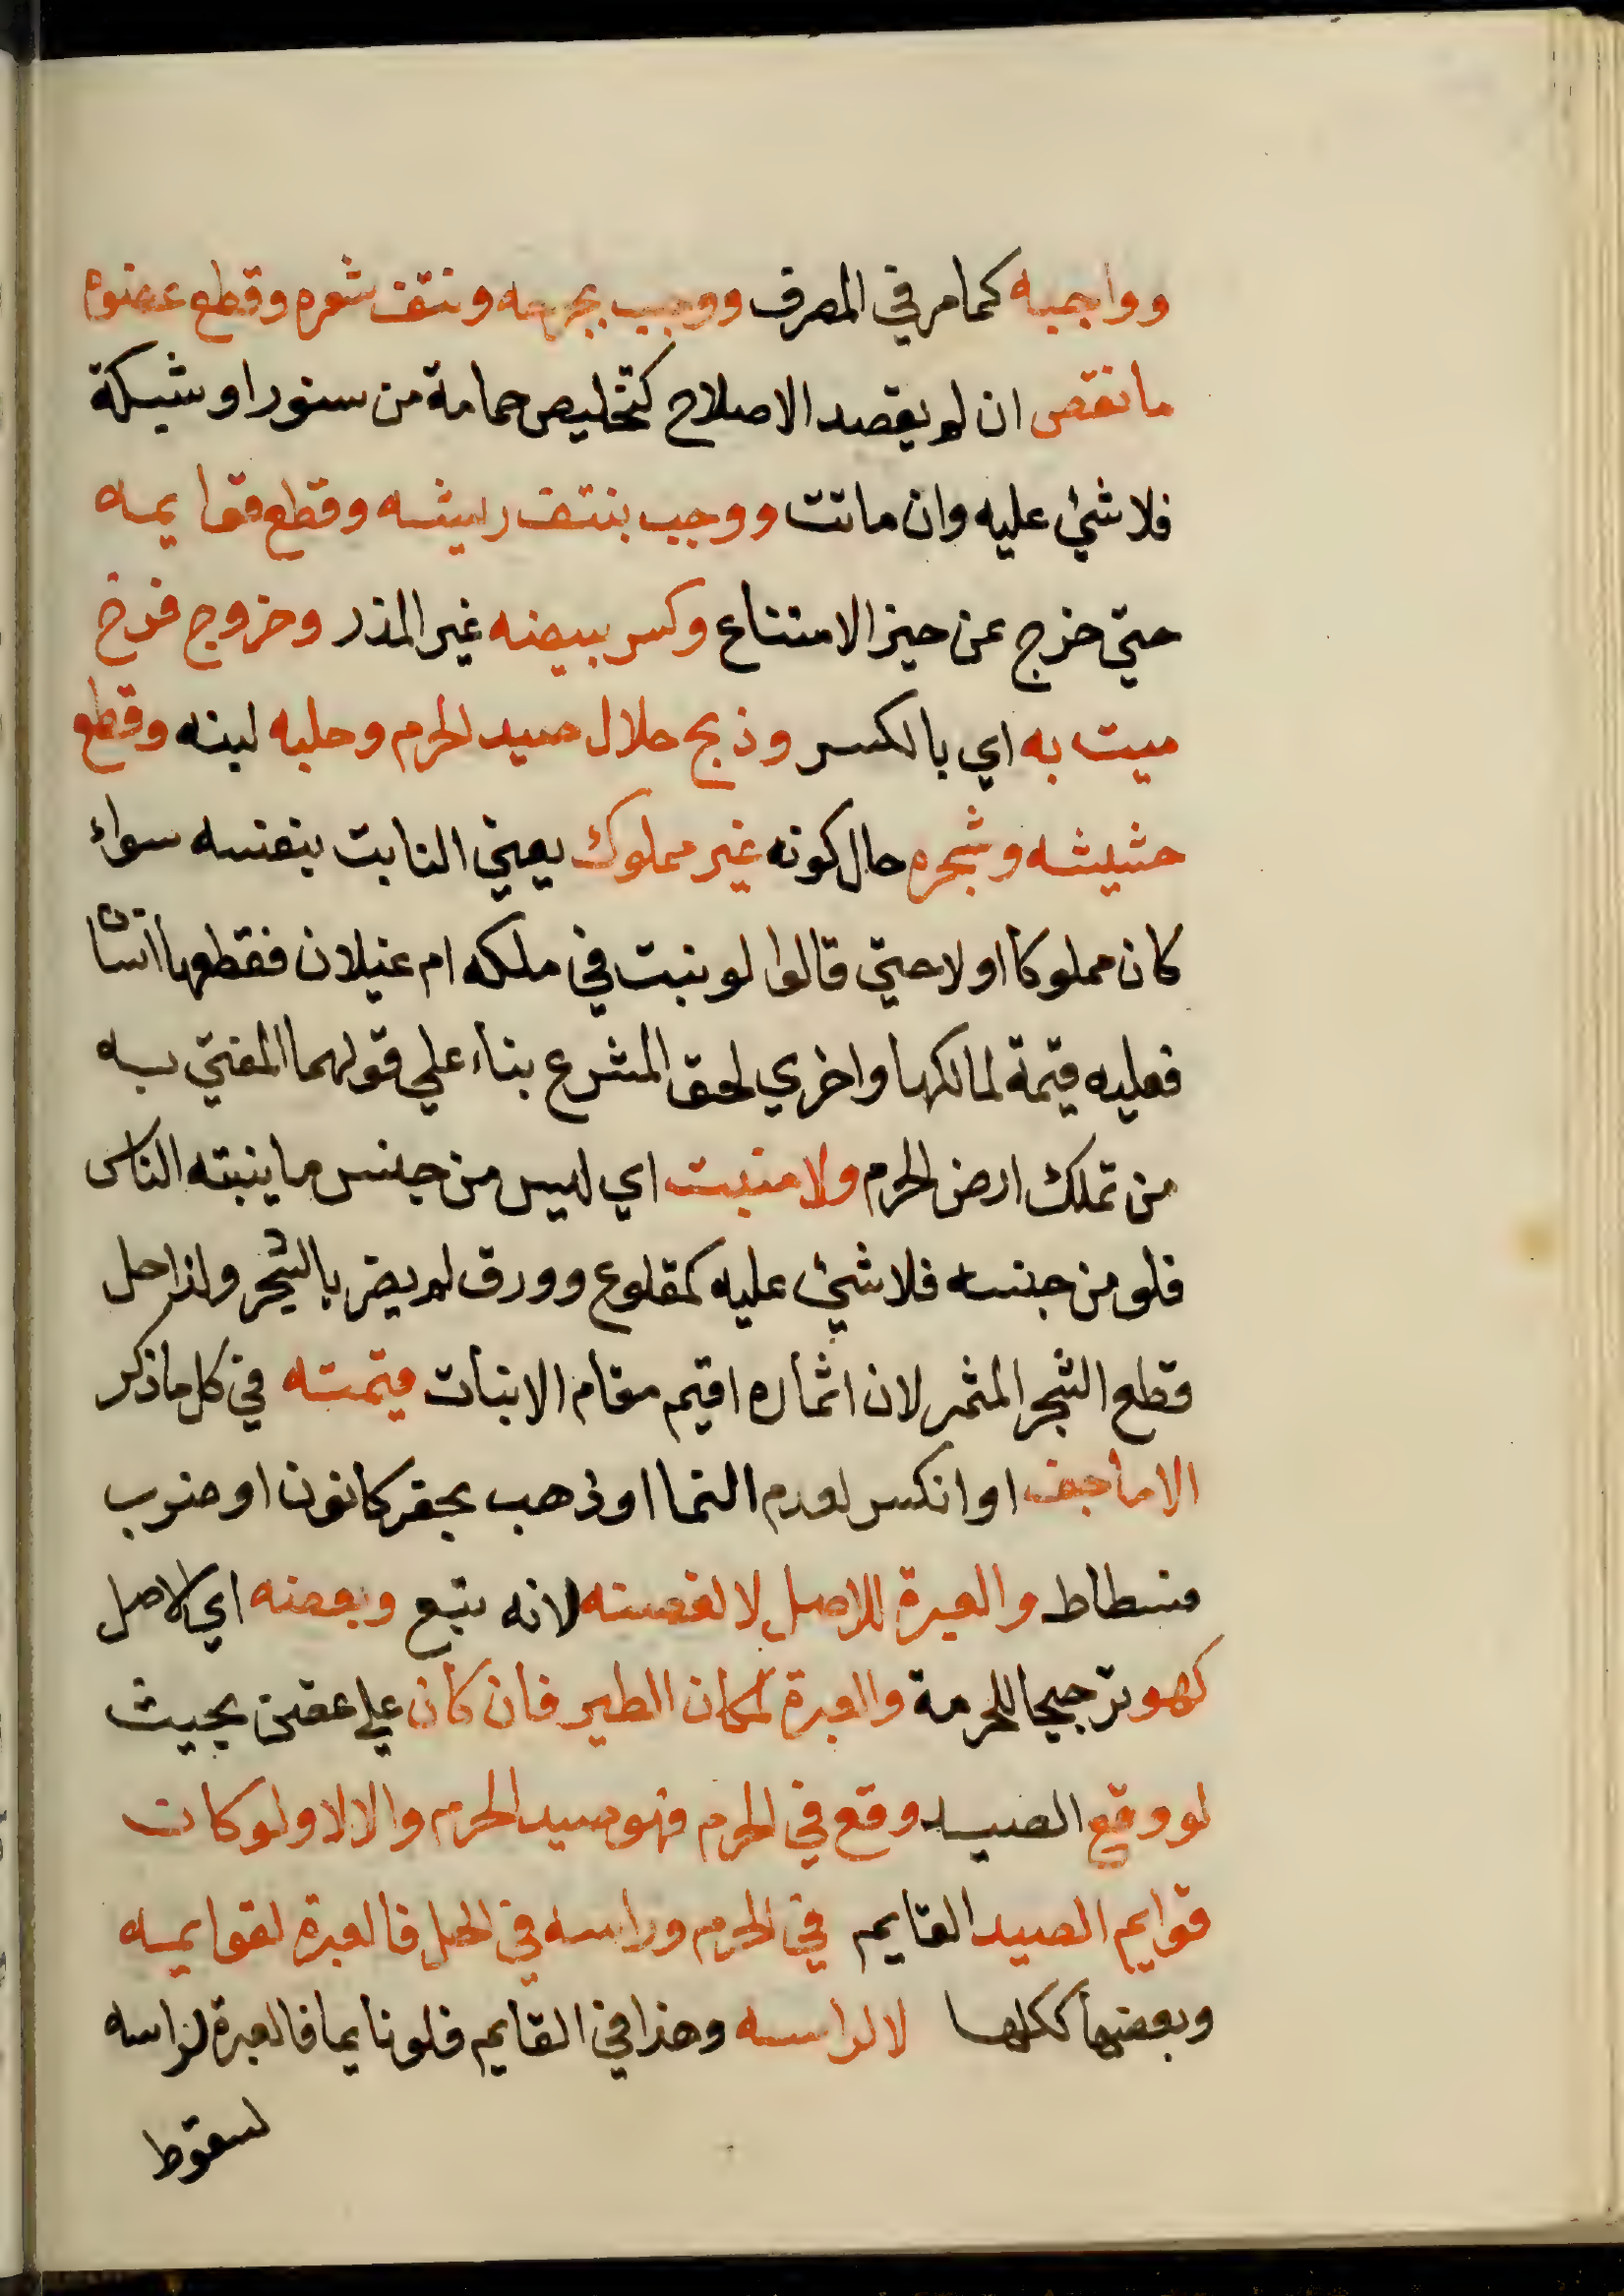 وواجبه كما مر في المصرف ووجب بجرحه ونتف شعره وقطع عضوه
ما نقص ان لم يقصد الاصلاح كتخليص حمامة من سنور او شبكة
فلا شئ عليه وان ماتت ووجب بنتف ريشه وقطع قوايمه
حتي خرج عن حيز الامتناع وكسر بيضه غير المذر وخروج فرخ
ميت به اي بالكسر وذبح حلال صيد الحرم وحلبه لبنه وقطع
حشيشه وشجره حال كونه غير مملوك يعني النابت بنفسه سواء
كان مملوكا او لا حتي قالوا لو نبت في ملكه ام غيلان فقطعها انسان
فعليه قيمة لمالكها واخري لحق الشرع بناء علي قولهما المفتي به
من تملك ارض الحرم ولا منبت اي ليس من جنس ما ينبته الناس
فلو من جنسه فلا شئ عليه كمقلوع وورق لم يضر بالشجر ولذا حل
قطع الشجر المثمر لان اثماره اقيم مقام الانبات قيمته في كل ما ذكر
الا ما جف او انكسر لعدم النما او ذهب بحفر كانون او ضرب
فسطاط والعبرة للاصل لا لغصنه لانه تبع وبعضه اي الاصل
كهو ترجيحا للحرمة والعبرة لمكان الطير فان كان علي غصن بحيث
لو وقع الصيد وقع في الحرم فهو صيد الحرم والا لا ولو كان
قوايم الصيد القايم في الحرم وراسه في الحل فالعبرة لقوايمه
وبعضها ككلها لا لراسه وهذا في القايم فلو نايما فالعبرة لراسه
لسقوط